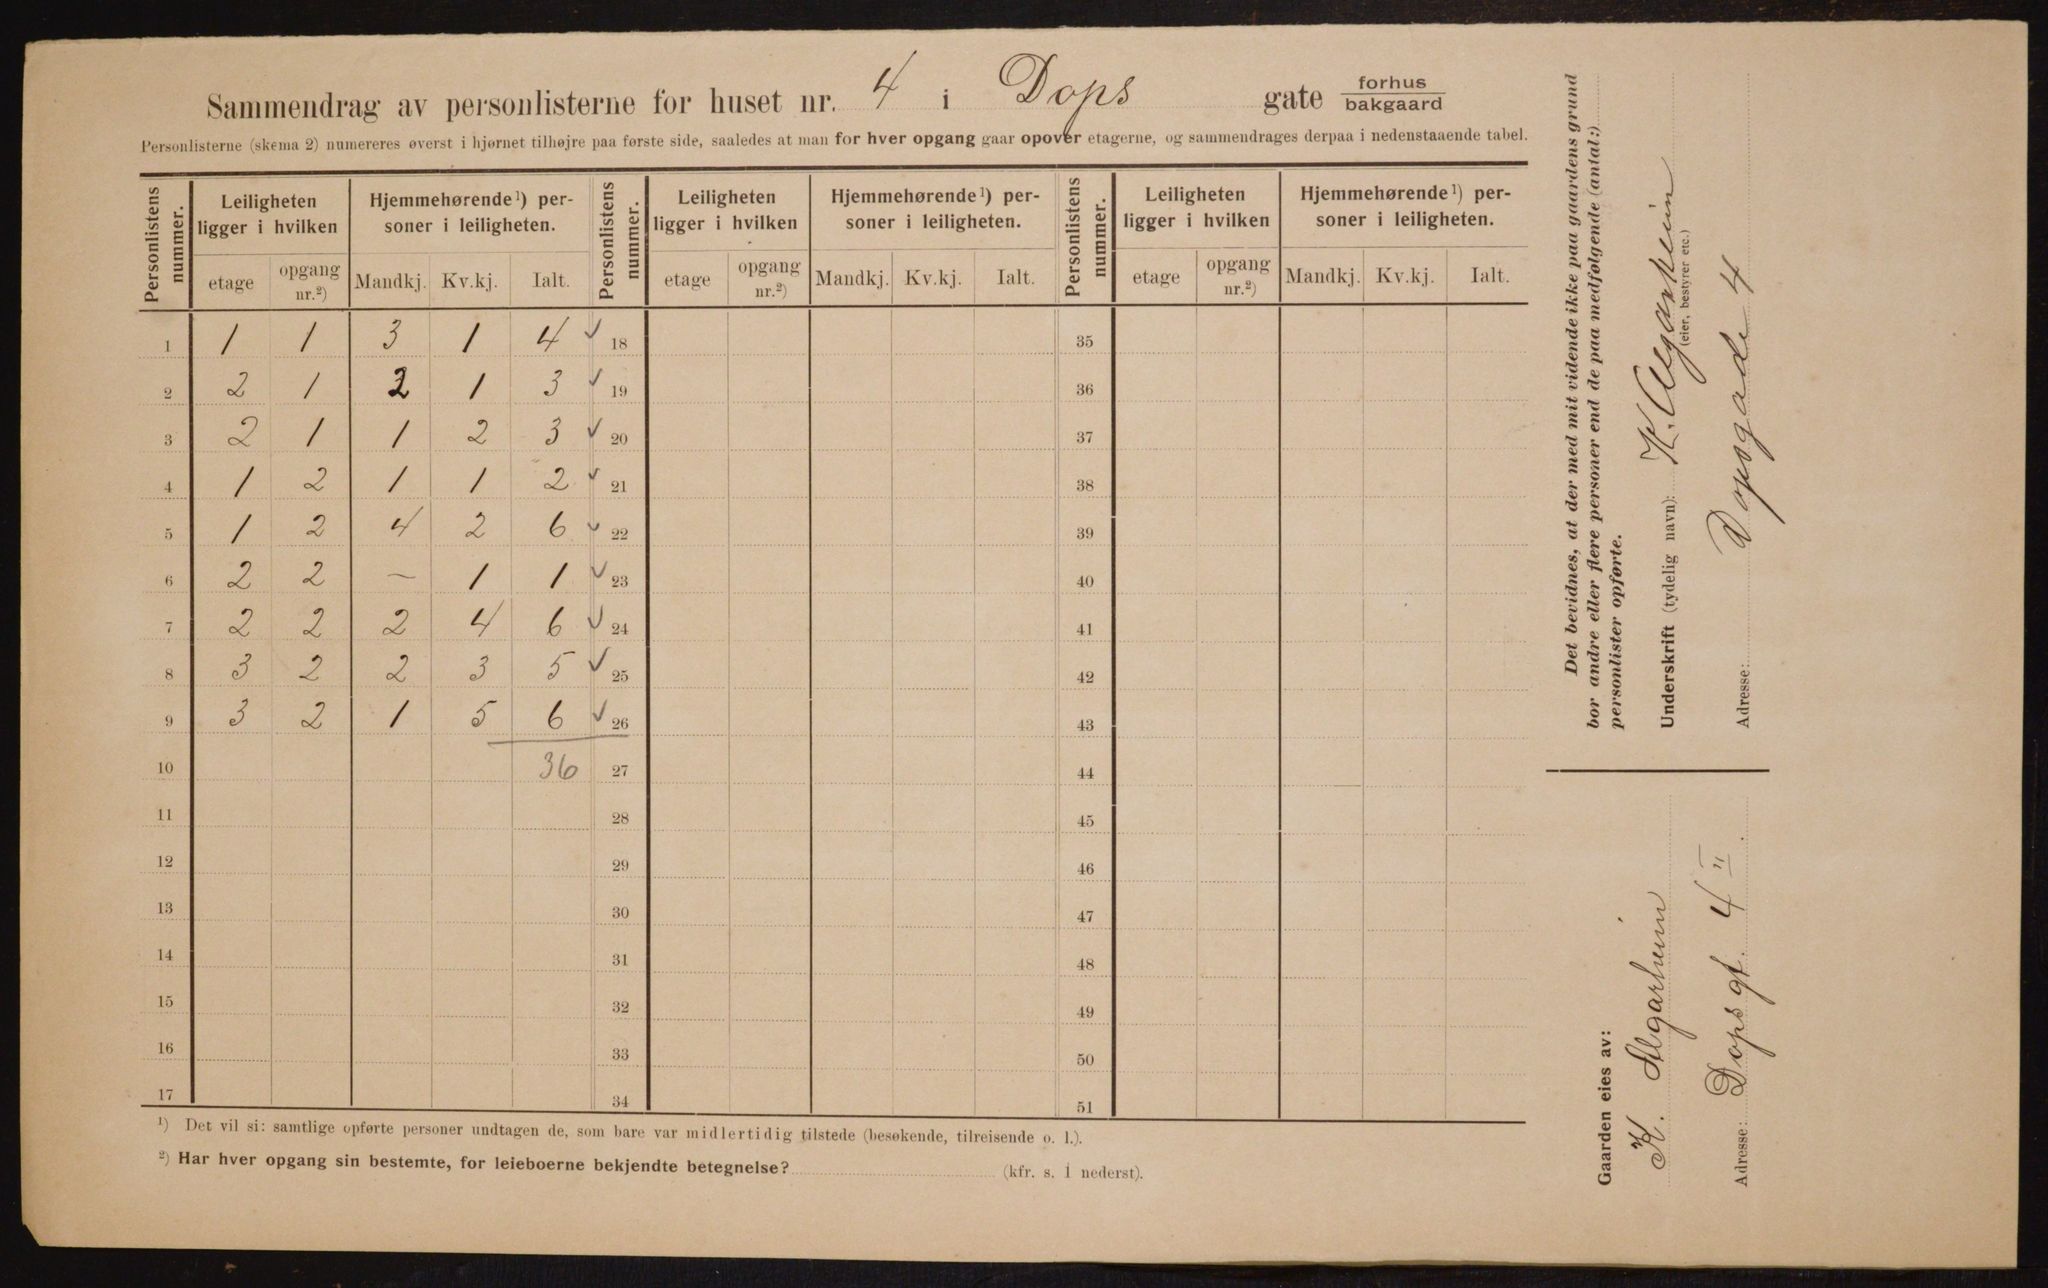 Sammendrag av personlisterne for huset nr. 4 i Dops gate forhus bakgaard
Personlisterne (skema 2) numereres øverst i hjørnet tilhøjre paa første side, saaledes at man for hver opgang gaar opover etagerne, og sammendrages derpaa i nedenstaaende tabel.
Personlistens nummer. Leiligheten ligger i hvilken Hjemmehørende¹) personer i leiligheten. Personlistens nummer. Leiligheten ligger i hvilken Hjemmehørende¹) personer i leiligheten. Personlistens nummer. Leiligheten ligger i hvilken Hjemmehørende¹) personer i leiligheten.
etage opgang nr.²) Mandkj. Kv.kj. Ialt. etage opgang nr.²) Mandkj. Kv.kj. Ialt. etage opgang nr.²) Mandkj. Kv.kj. Ialt.
1 1 1 3 1 4 ✓ 18 35
2 2 1 2 1 3 ✓ 19 36
3 2 1 1 2 3 ✓ 20 37
4 1 2 1 1 2 ✓ 21 38
5 1 2 4 2 6 ✓ 22 39
6 2 2 – 1 1 ✓ 23 40
7 2 2 2 4 6 ✓ 24 41
8 3 2 2 3 5 ✓ 25 42
9 3 2 1 5 6 ✓ 26 43
10 36 27 44
11 28 45
12 29 46
13 30 47
14 31 48
15 32 49
16 33 50
17 34 51
¹) Det vil si: samtlige opførte personer undtagen de, som bare var midlertidig tilstede (besøkende, tilreisende o. l.).
²) Har hver opgang sin bestemte, for leieboerne bekjendte betegnelse? (kfr. s. 1 nederst).
Det bevidnes, at der med mit vidende ikke paa gaardens grund
bor andre eller flere personer end de paa medfølgende (antal:)
personlister opførte.
Underskrift (tydelig navn): K. Algarheim
(eier, bestyrer etc.)
Adresse: Dopsgade 4
Gaarden eies av:
K. Algarheim
Adresse: Dops gt. 4 II.